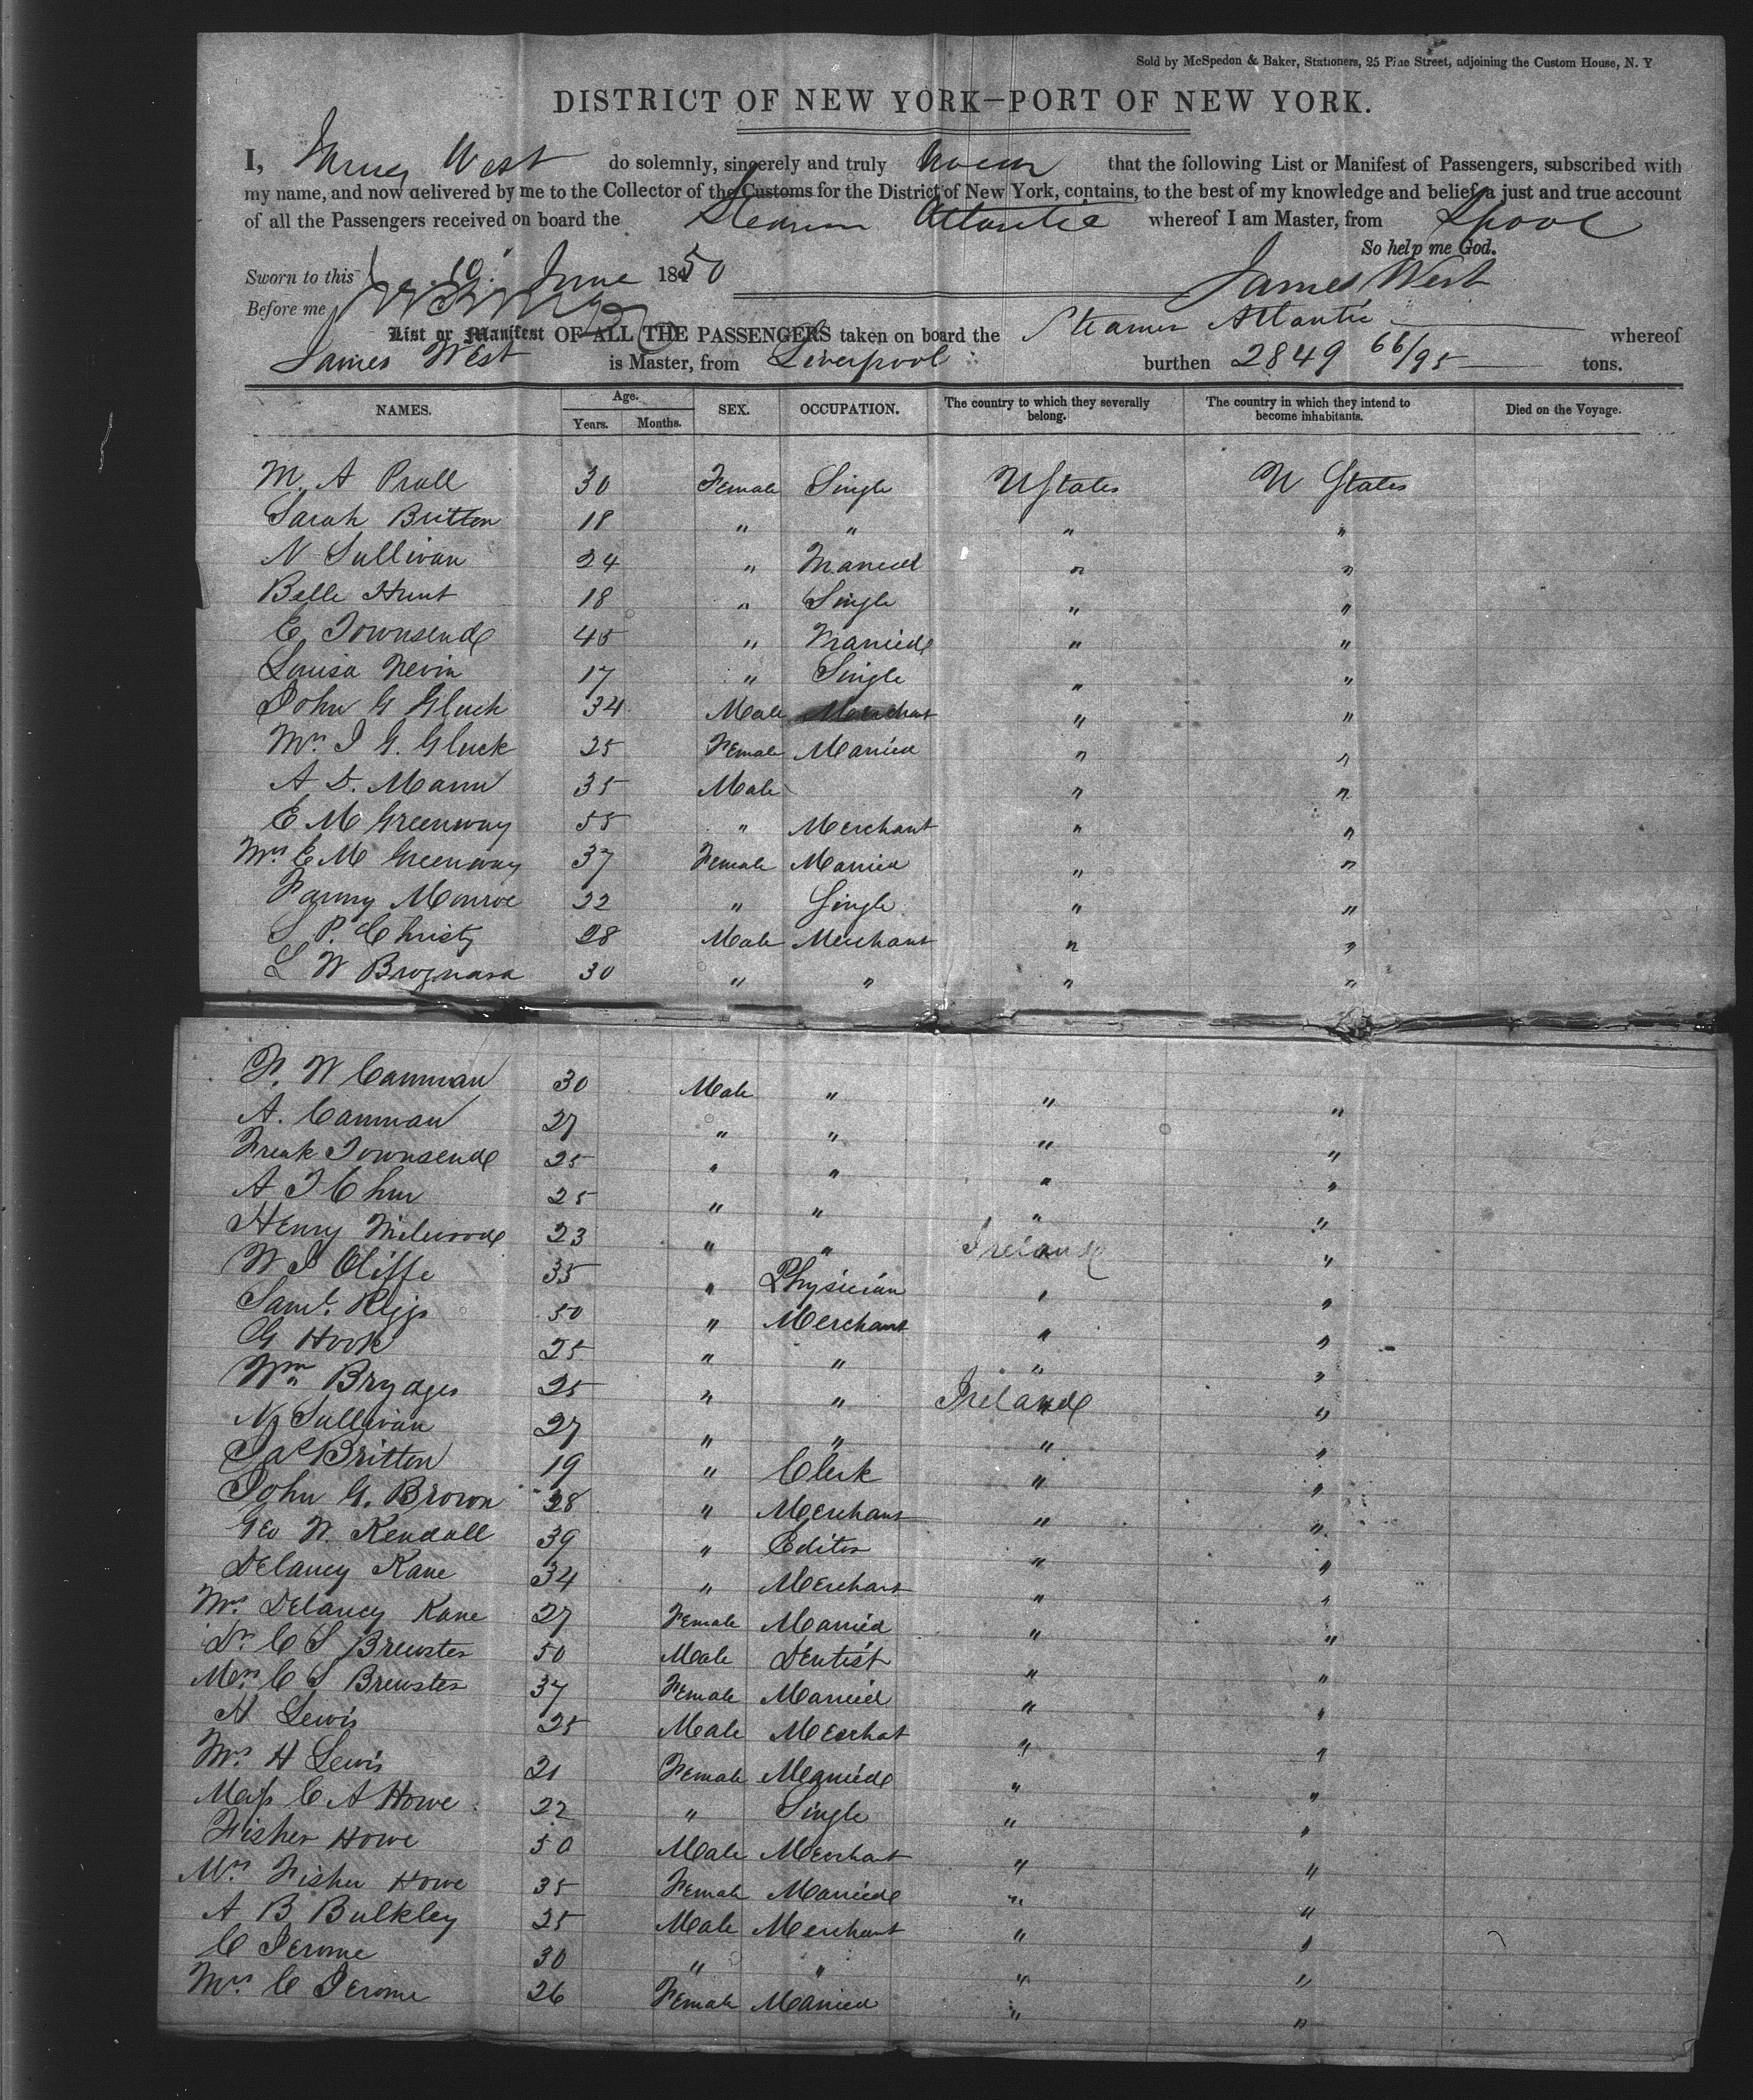 Sold by McSpedon & Baker, Stationers, 25 Pine Street, adjoining the Custom House, N. Y
DISTRICT OF NEW YORK—PORT OF NEW YORK.
I, James West do solemnly, sincerely and truly swear that the following List or Manifest of Passengers, subscribed with
my name, and now delivered by me to the Collector of the Customs for the District of New York, contains, to the best of my knowledge and belief, a just and true account
of all the Passengers received on board the Steamer Atlantic whereof I am Master, from Lpool
So help me God.
Sworn to this 10 June 1850 James West
Before me
List or Manifest OF ALL THE PASSENGERS taken on board the Steamer Atlantic whereof
James West is Master, from Liverpool burthen 2849 66/95 tons.
NAMES. Age. Years. Months. SEX. OCCUPATION. The country to which they severally belong. The country in which they intend to become inhabitants. Died on the Voyage.
M. A Prall 30 Female Single U States U States
Sarah Britton 18 " " " "
N Sullivan 24 " Married " "
Belle Hunt 18 " Single " "
E Townsend 45 " Married " "
Louisa Nevin 17 " Single " "
John G Gluck 34 Male Merchant " "
Mrs J G. Gluck 25 Female Married " "
A D. Mann 35 Male " "
E M Greenway 55 " Merchant " "
Mrs E M Greenway 37 Female Married " "
Fanny Monroe 22 " Single " "
S P. Christy 28 Male Merchant " "
L W Brognard 30 " " " "
F. W Camman 30 Male " " "
A. Camman 27 " " " "
Frank Townsend 25 " " " "
A J Chur 25 " " " "
Henry 23 " " Ireland "
W J Cliffe 35 " Physician " "
Saml. Riggs 50 " Merchant " "
G Hook 25 " " " "
Wm Brydges 25 " " Ireland "
N Sullivan 27 " " " "
Jas Britton 19 " Clerk " "
John G. Brown 28 " Merchant " "
Geo W. Kendall 39 " Editor " "
Delancy Kane 34 " Merchant " "
Mrs. Delancy Kane 27 Female Married " "
Dr. C S Brewster 50 Male Dentist " "
Mrs. C S Brewster 37 Female Married " "
H Lewis 25 Male Merchat " "
Mrs. H Lewis 21 Female Married " "
Miss C A Howe 22 " Single " "
Fisher Howe 50 Male Merchant " "
Mrs Fisher Howe 35 Female Married " "
A B Bulkley 25 Male Merchant " "
C Jerome 30 " " " "
Mrs. C Jerome 26 Female Married " "